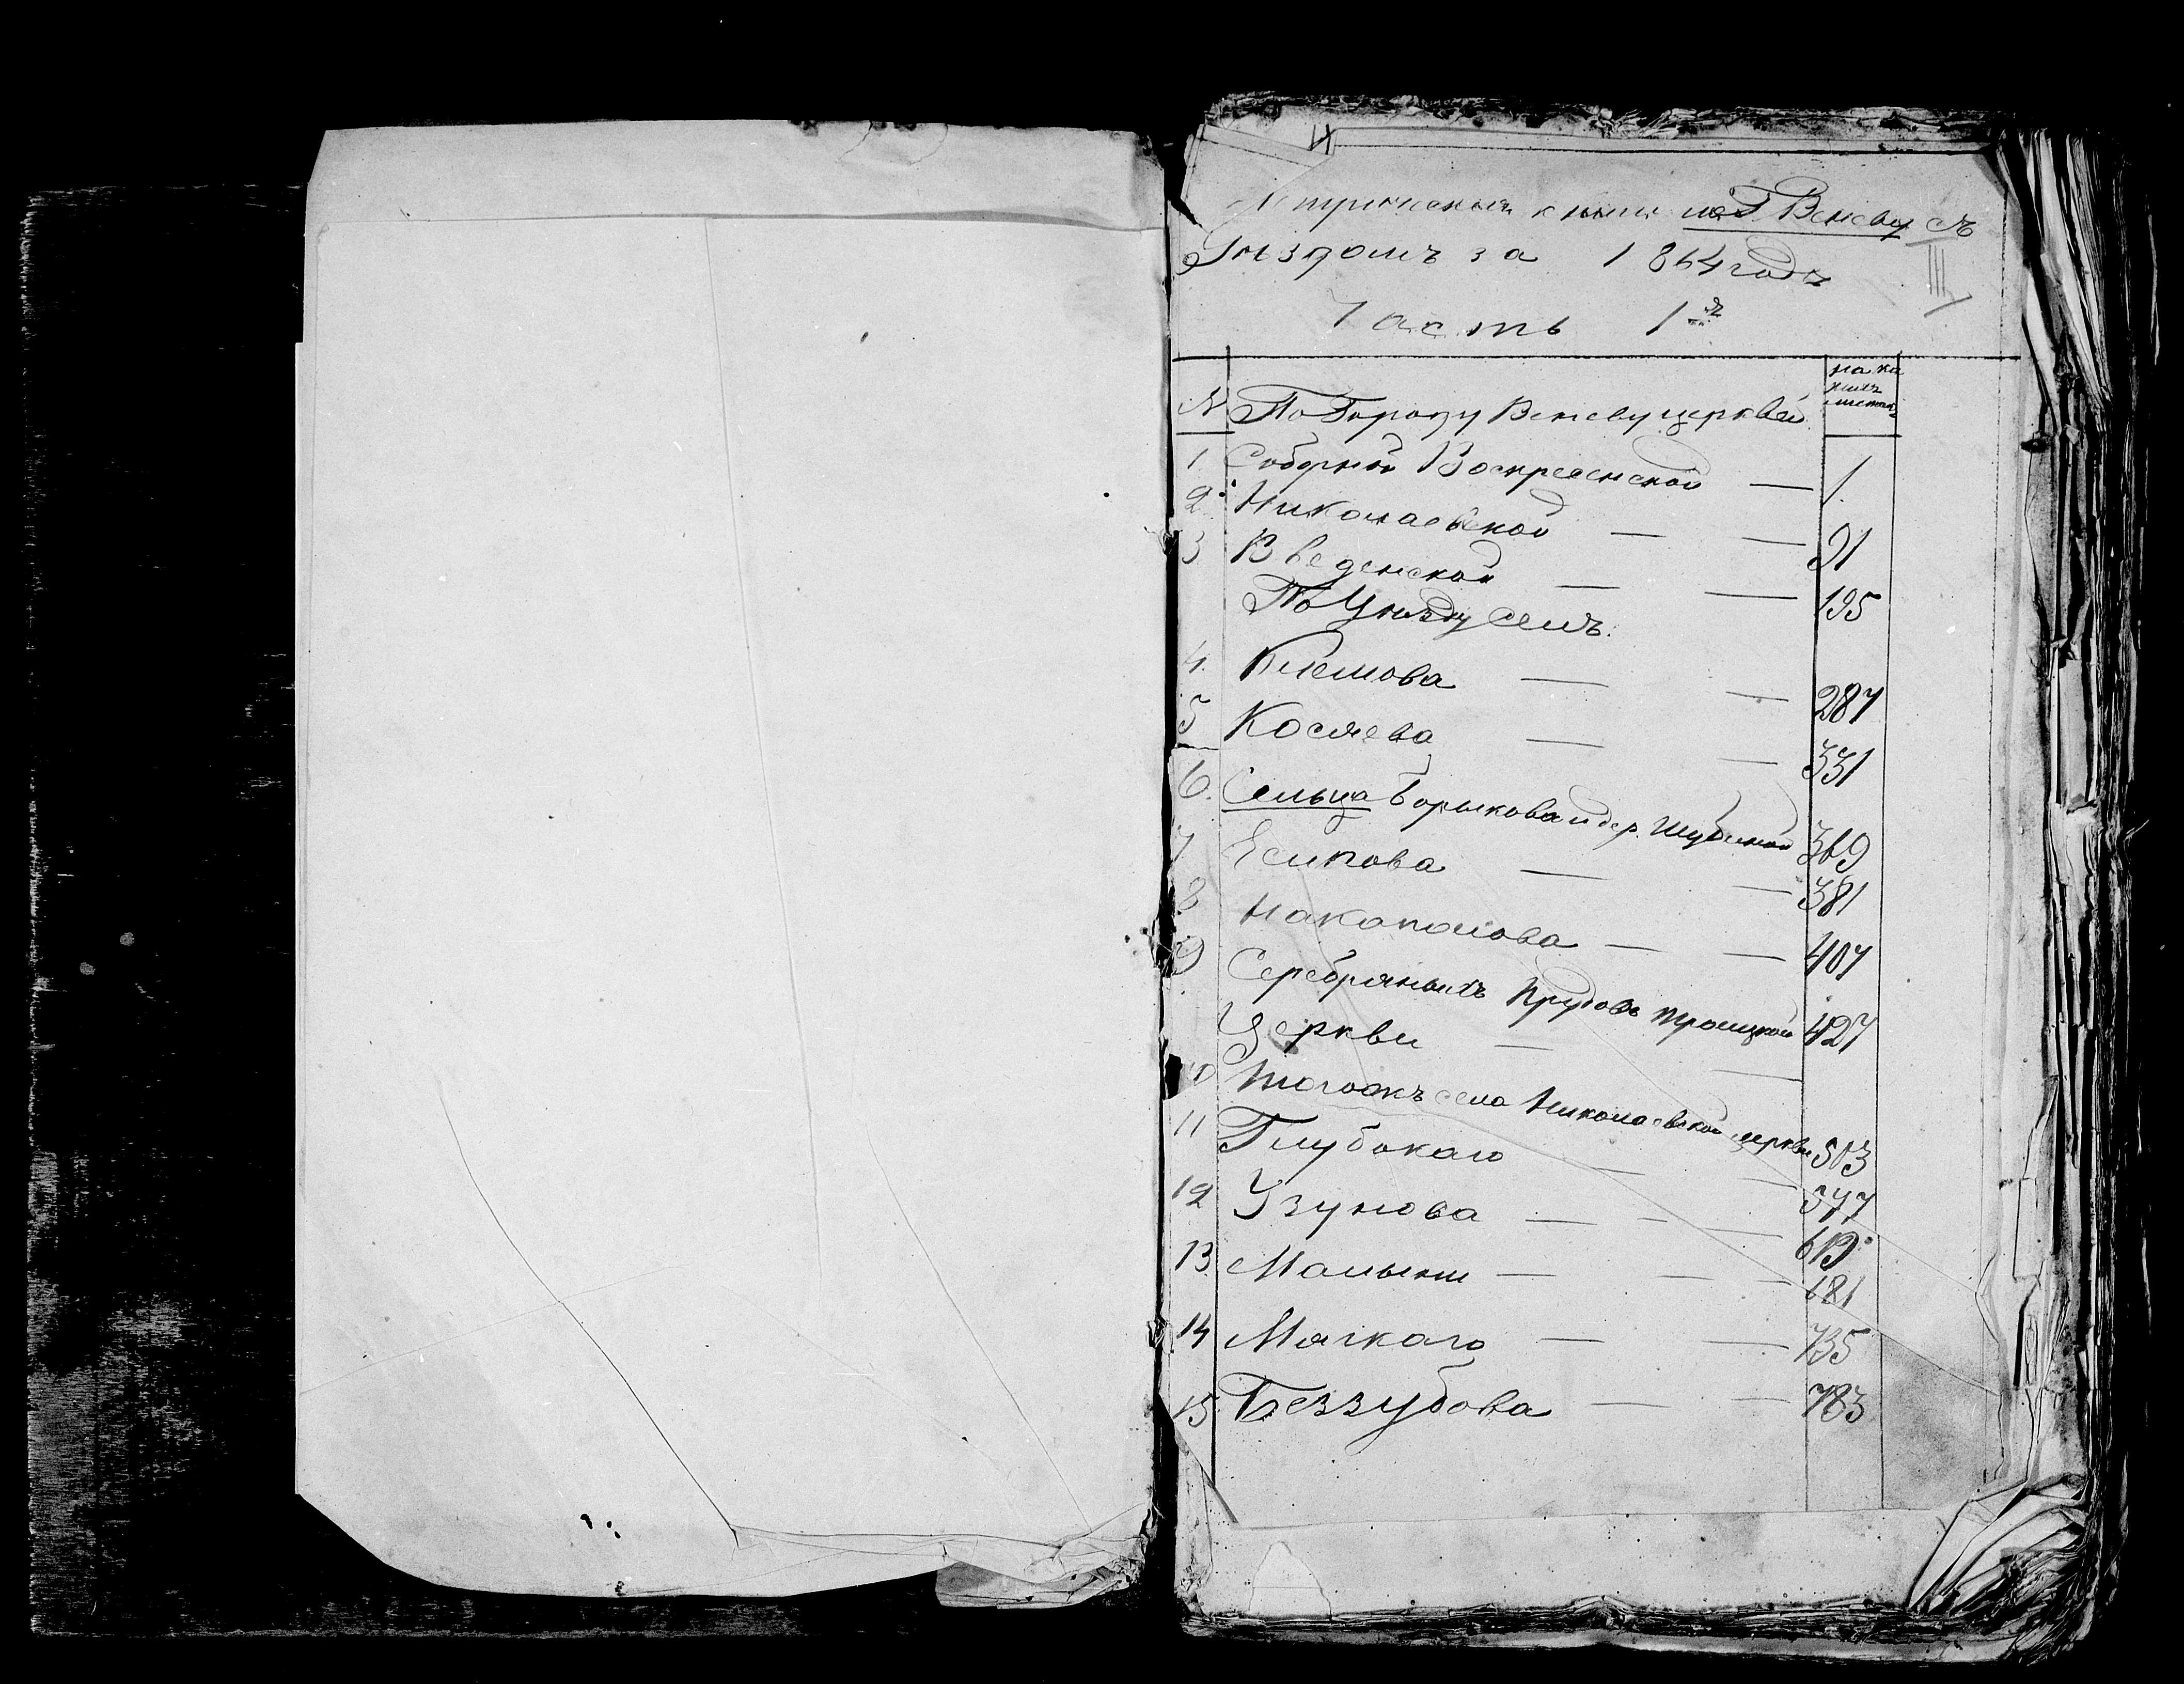 Метрическия книги по Г Веневу съ
Уѣздомъ за 1864 годъ
III
Часть 1я
№ По Городу Веневу церквей
на ка
кихъ
листах
1. Соборной Воскресенской — 1.
2. Николаевской — — 91
3 Введенской — — 195
По Уѣзду селъ.
4. Клемова — — 287
5 Косяева — — 331
6. Сельца Борыкова и дер. Шубиной 369
7 Есипова — — 381
8 Накаполова — — 407
9 Серебряныхъ Прудовъ Троицкой 427
Церкви — —
10 Тогожъ села Николаевской церкви 503
11 Глубокаго — — 577
12 Узунова — - — 619
13 Малыни — — — 681
14 Мягкаго — — 735
15 Беззубова — — 783